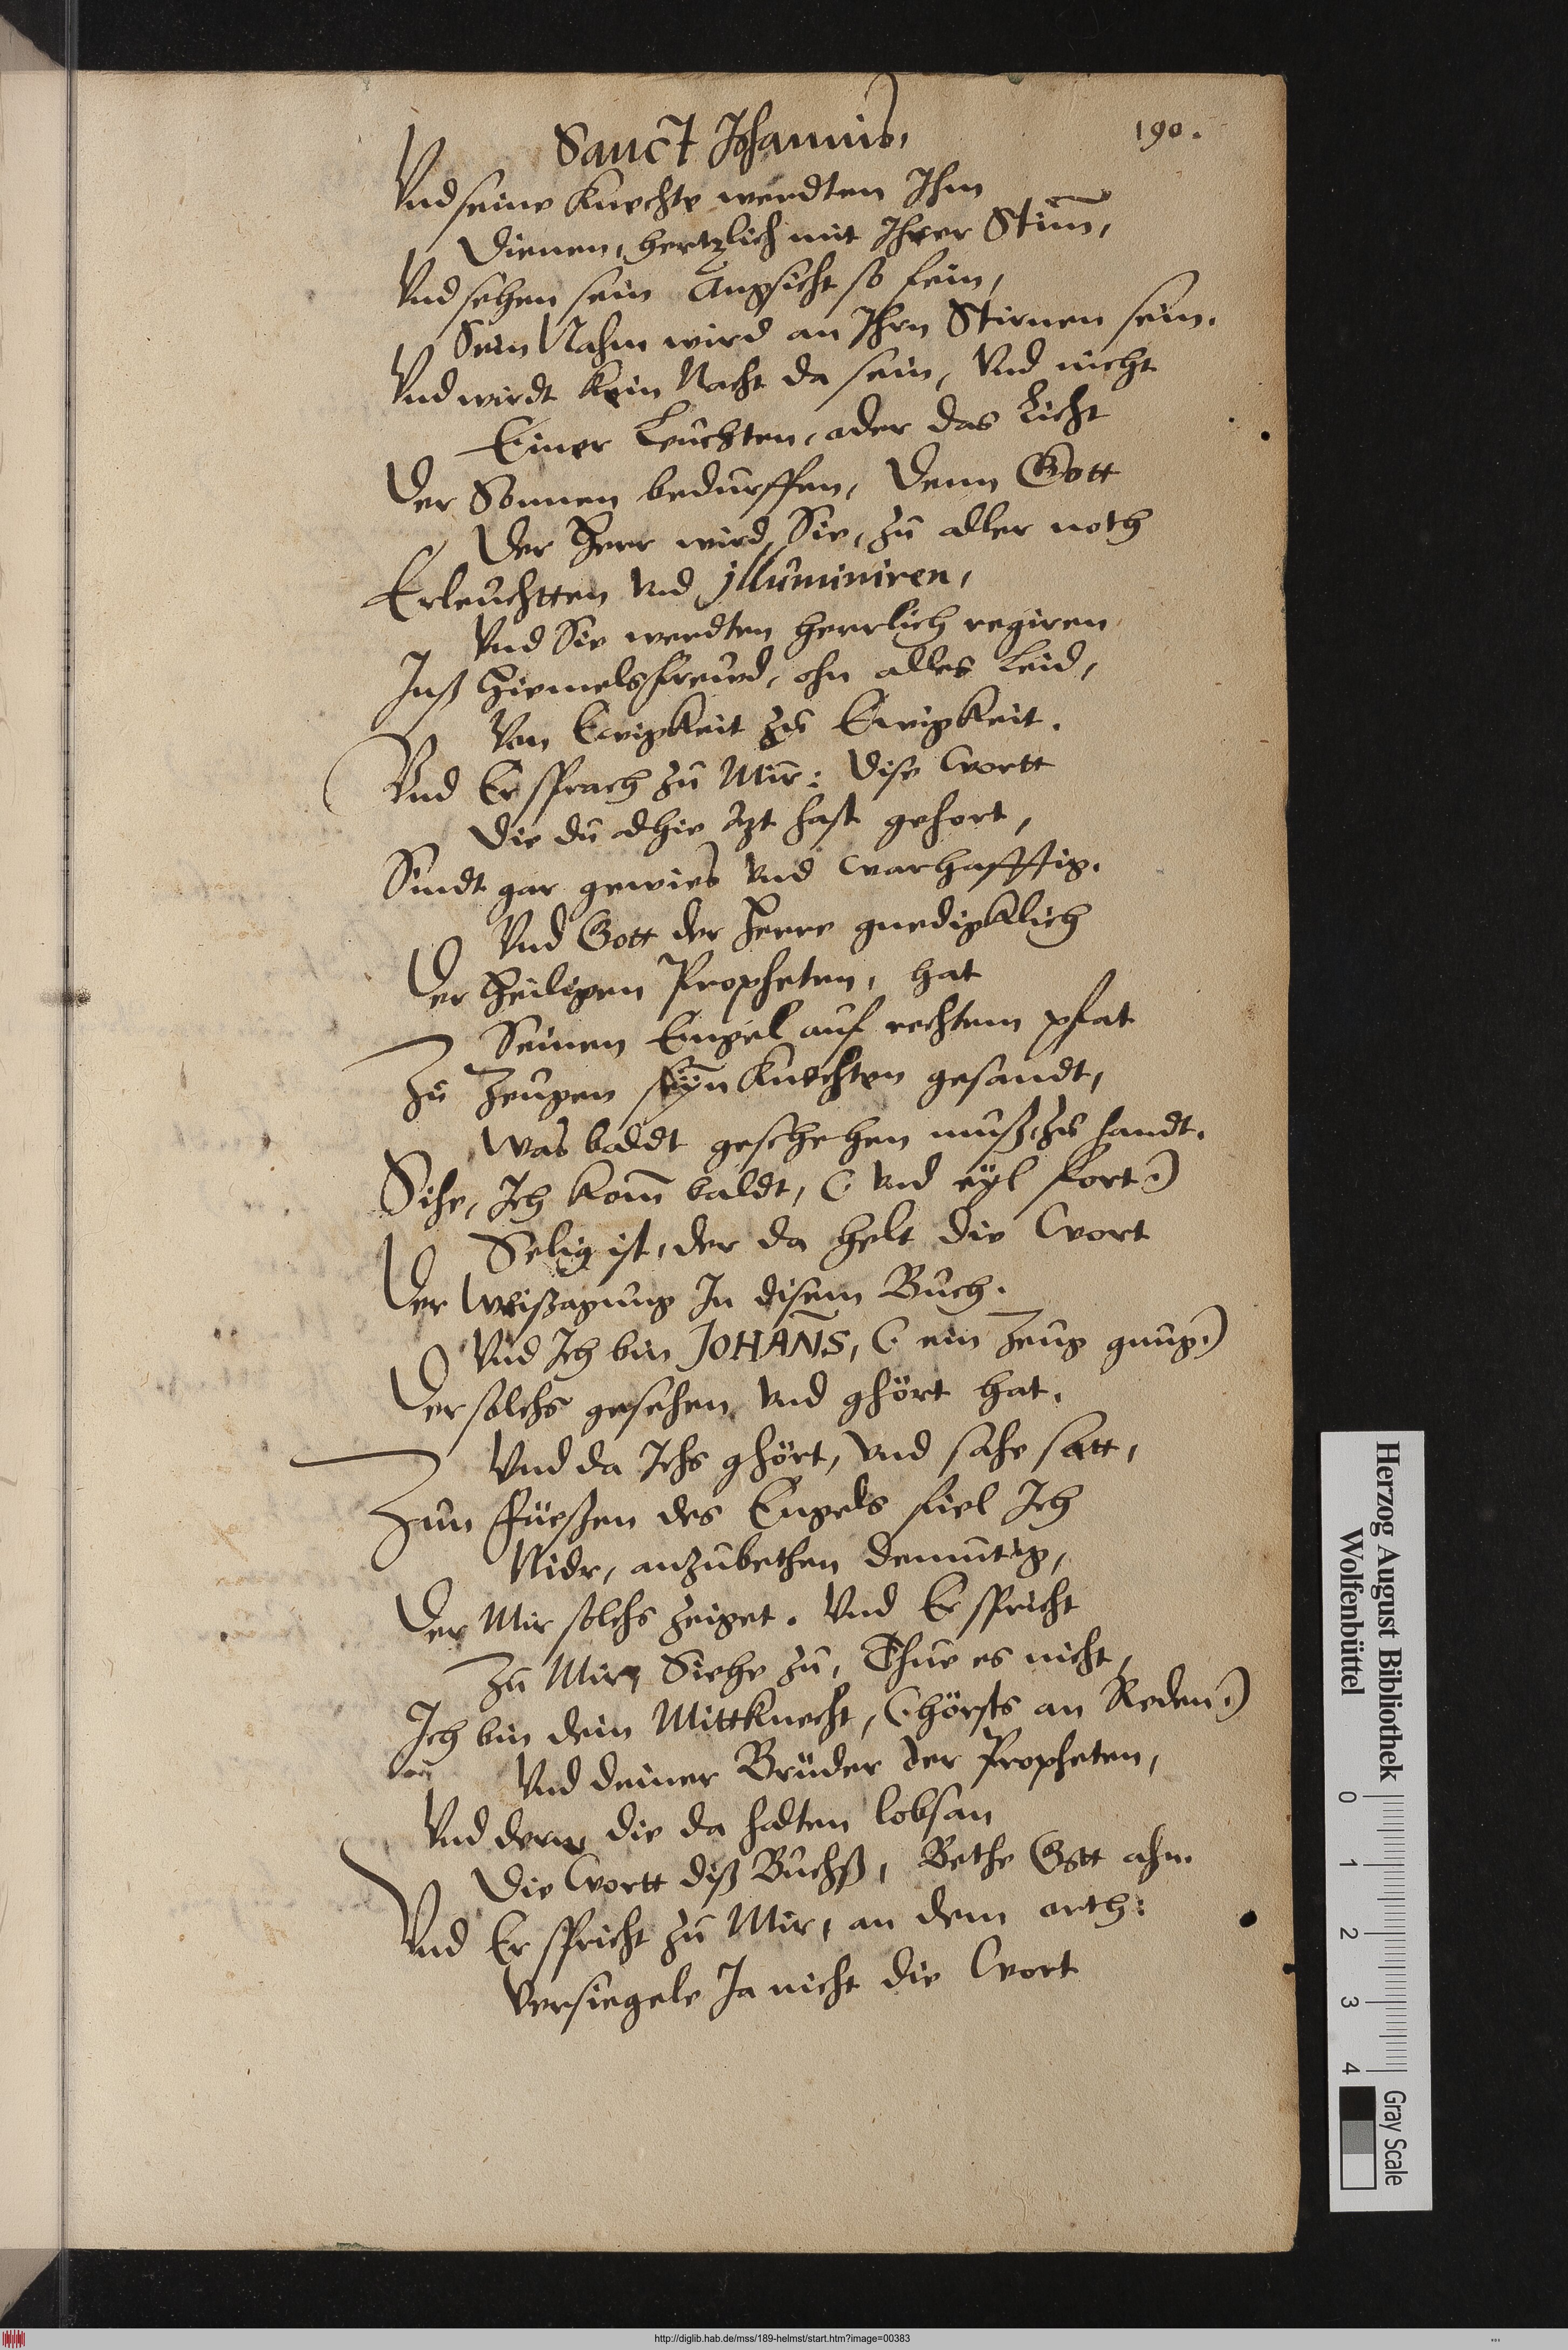 Sanct Johannis,
190.
Vnd seine Knechte werdten Ihm
Dienen, hertzlich mit Ihrer Stim̄,
Vnd sehen sein Angsicht so fein,
Sein Nahm wird an Ihrn Stirnen sein.
Vnd wirdt kein Nacht da sein, Vnd nicht
Einer Leuchten, oder das Licht
Der Sonnen bedurffen, Denn Gott
Der Herr wird Sie, zu aller noth
Erleuchtten vnd jlluminiren,
Vnd Sie werdten herrlich regiren
Inß Himelsfreüd, ohn alles Leid,
Von Ewigkeit zu Ewigkeit.
Vnd Er sprach zu Mir: Dise Wortt
Die du alhie itzt hast gehort,
Sindt gar gewies vnd warhafftig.
Vnd Gott der Herre gnedigklich
Der Heiligen Propheten, hat
Seinen Engel auf rechtem pfat
Zu Zeugen seÿn Knechten gesandt,
Was baldt geschehen muß, zu handt.
Sihe, Ich kom̄ baldt, (. vnd eÿl fort .)
Selig ist, der da helt die Wort
Der Weißagung In disem Buch.
Vnd Ich bin JOHAÑS, (. ein Zeug gnug .)
Der solchs gesehen vnd ghört hat.
Vnd da Ichs ghört, vnd sahe satt,
Zun Füeßen des Engels fiel Ich
Nidr, anzubethen demutig,
Der Mir solchs zeiget. Vnd Er spricht
Zu Mir, Siehe zu, Thue es nicht,
Ich bin dein Mittknecht, (. hörsts an Reden .)
Vnd deiner Brüder der Propheten,
Vnd derer die da halten lobsan
Die Wortt diß Buchß, Bethe Gott ahn.
Vnd Er spricht zu Mir, an dem orth:
Versiegele Ja nicht die Wort
Herzog August Bibliothek
Wolfenbüttel
0 1 2 3 4
Gray Scale
http://diglib.hab.de/mss/189-helmst/start.htm?image=00383